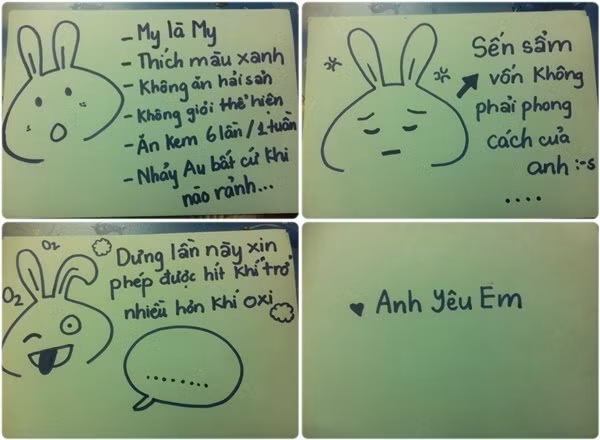 - My là My
- Thích màu xanh
- Không ăn hải sản
- Không giỏi thể hiện
- Ăn kem 6 lần / 1 tuần
- Nhảy Au bất cứ khi
nào rảnh...
Sến sẩm
vốn không
phải phong
cách của
anh :-s
....
O2
O2
Dưng lần này xin
phép được hít khí trơ
nhiều hơn khí oxi
........
♥ Anh Yêu Em